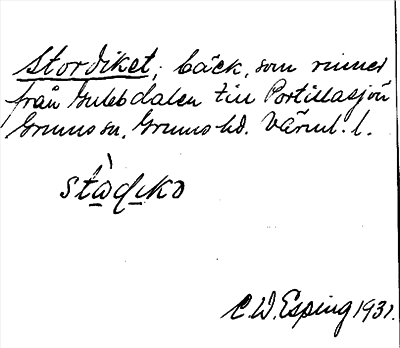 Stordiket, bäck, som rinner
från Gulebdalen till Portillasjön
Grums sn. Grums hd. Värml. l.
stòdiko
C W. Esping 1931.